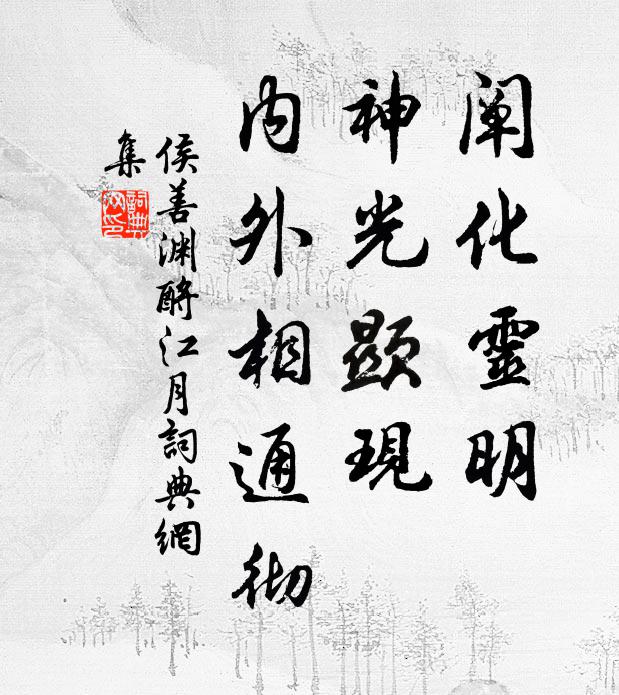 阐化靈明
神光顯現
内外相通彻
侯善渊酹江月詞典網
集
詞典
网印